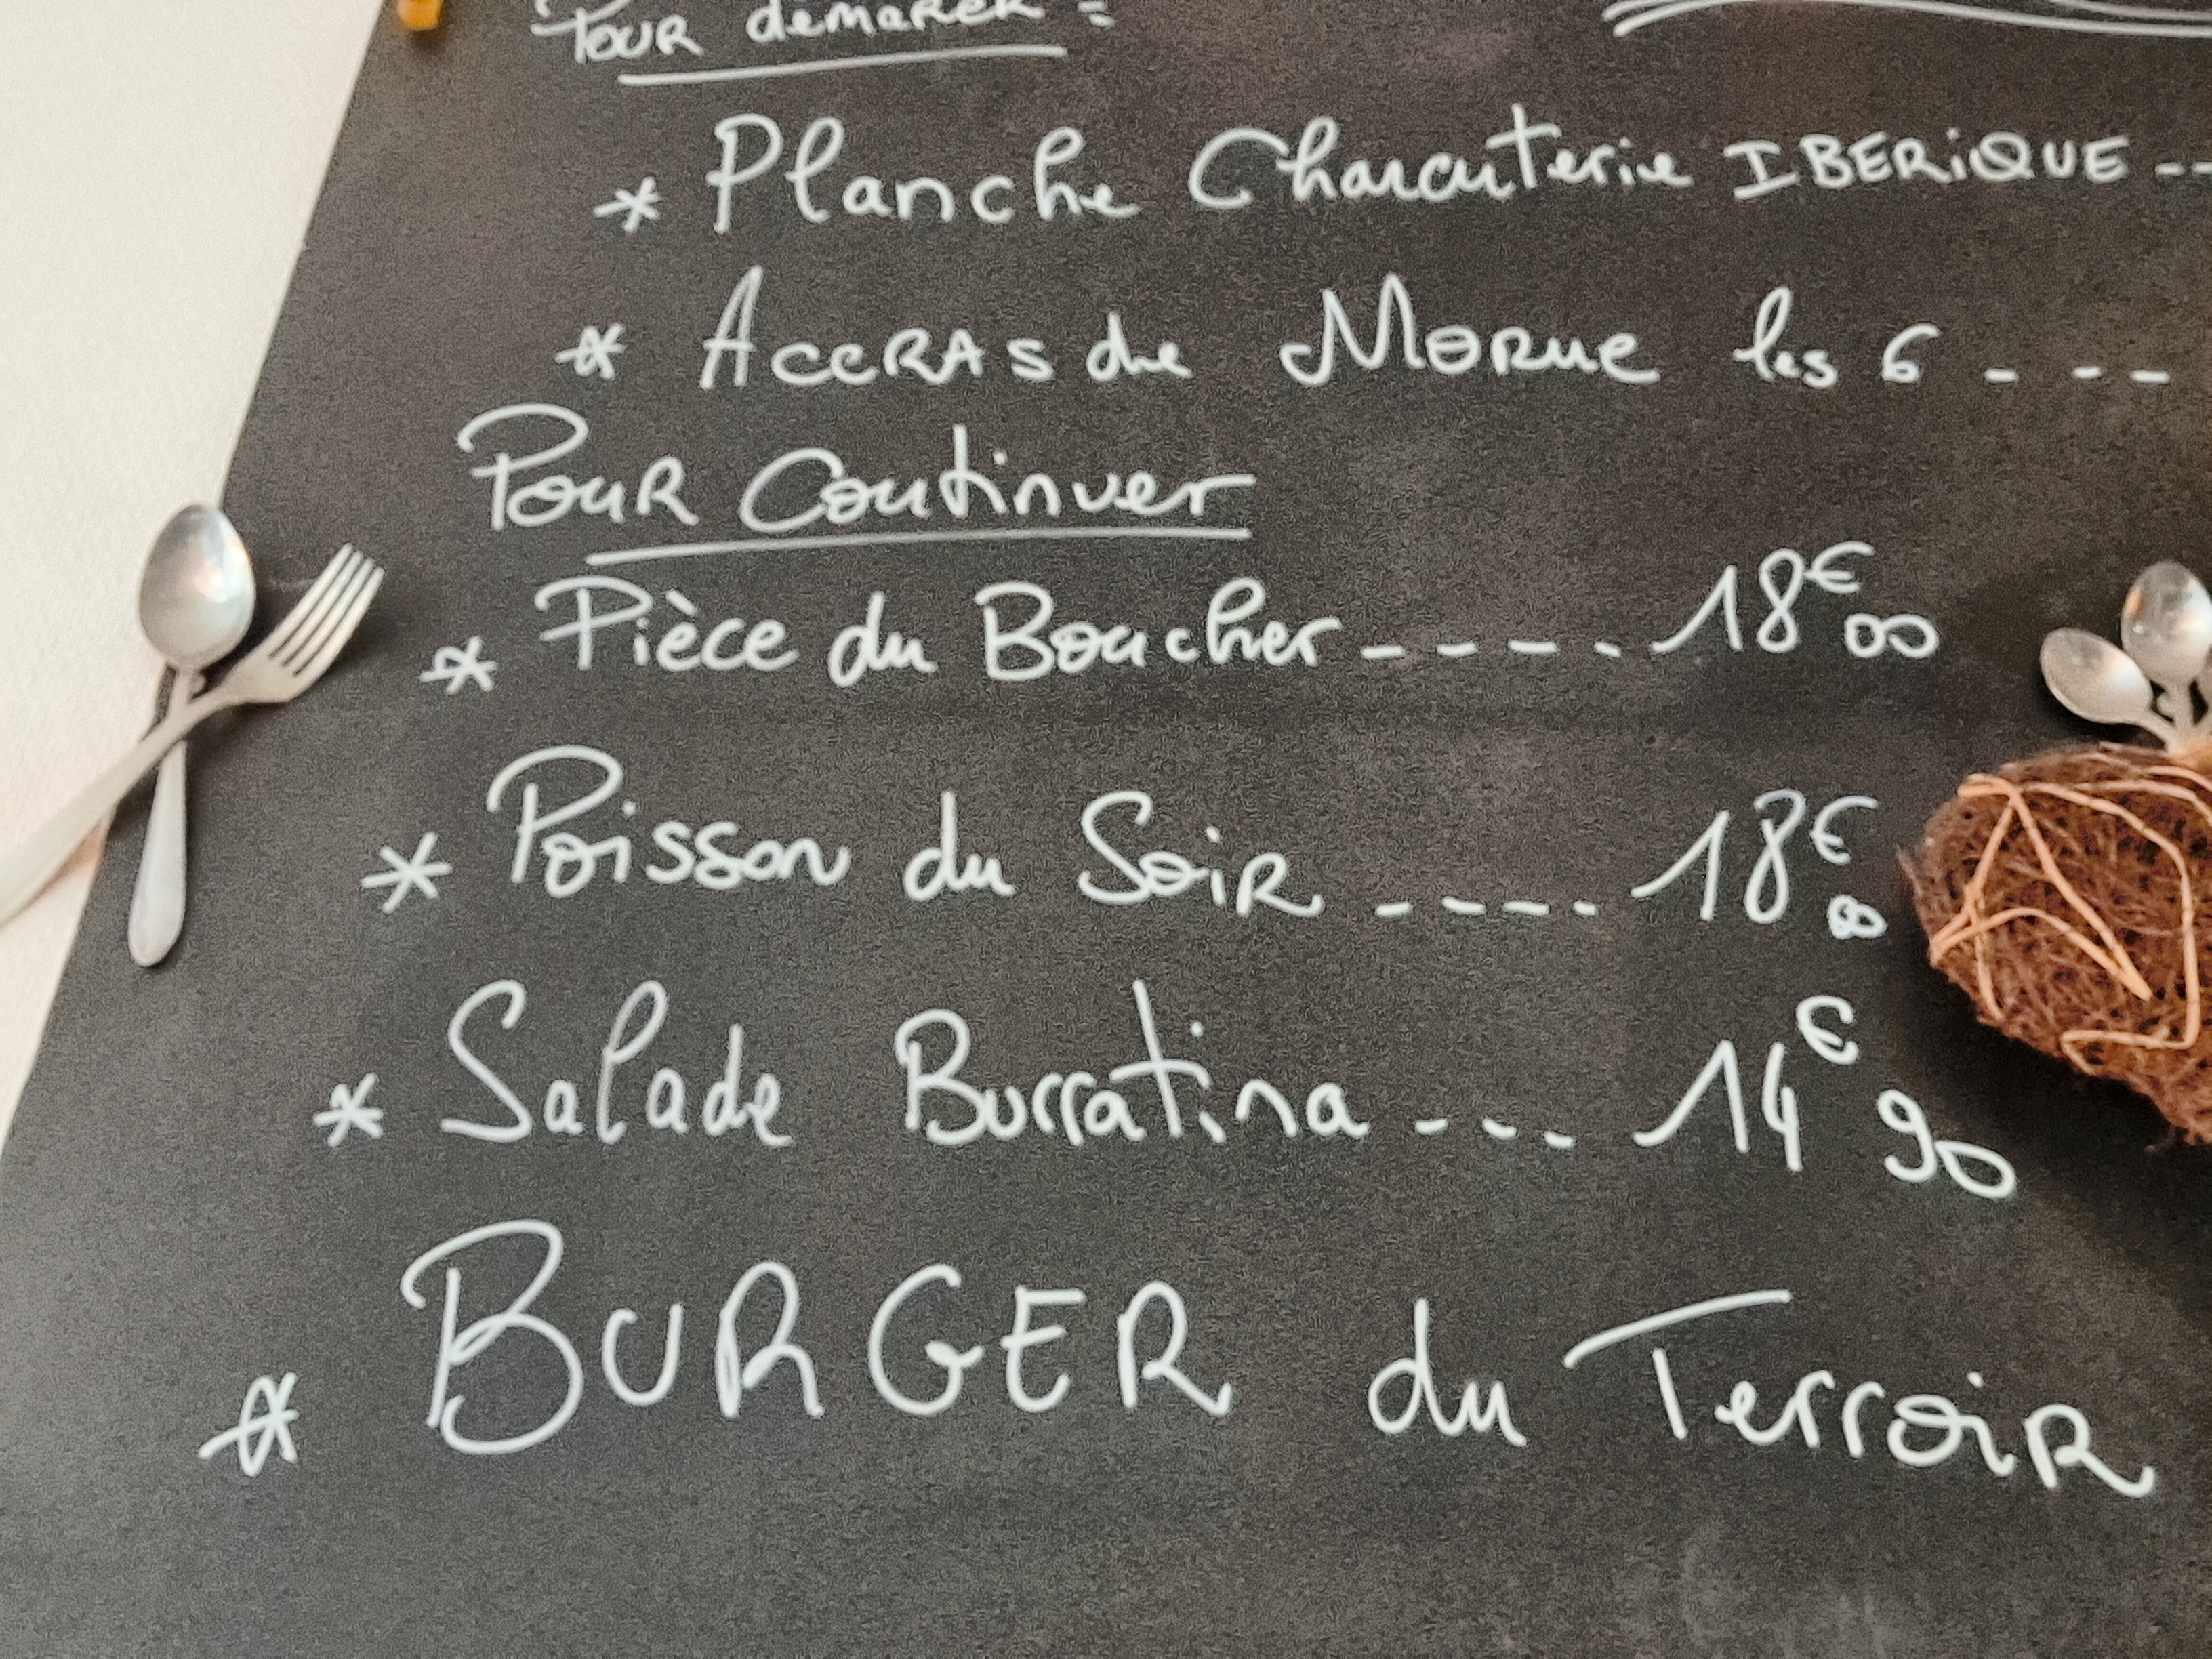 Pour demarer :
* Planche Charcuterie IBERiQUE --
* AccRAs de Morue les 6 - - - -
Pour Continuer
* Pièce du Boucher - - - - - 18€00
* Poisson du Soir - - - - - 18€00
* Salade Burratina - - - 14€90
* BURGER du Terroir